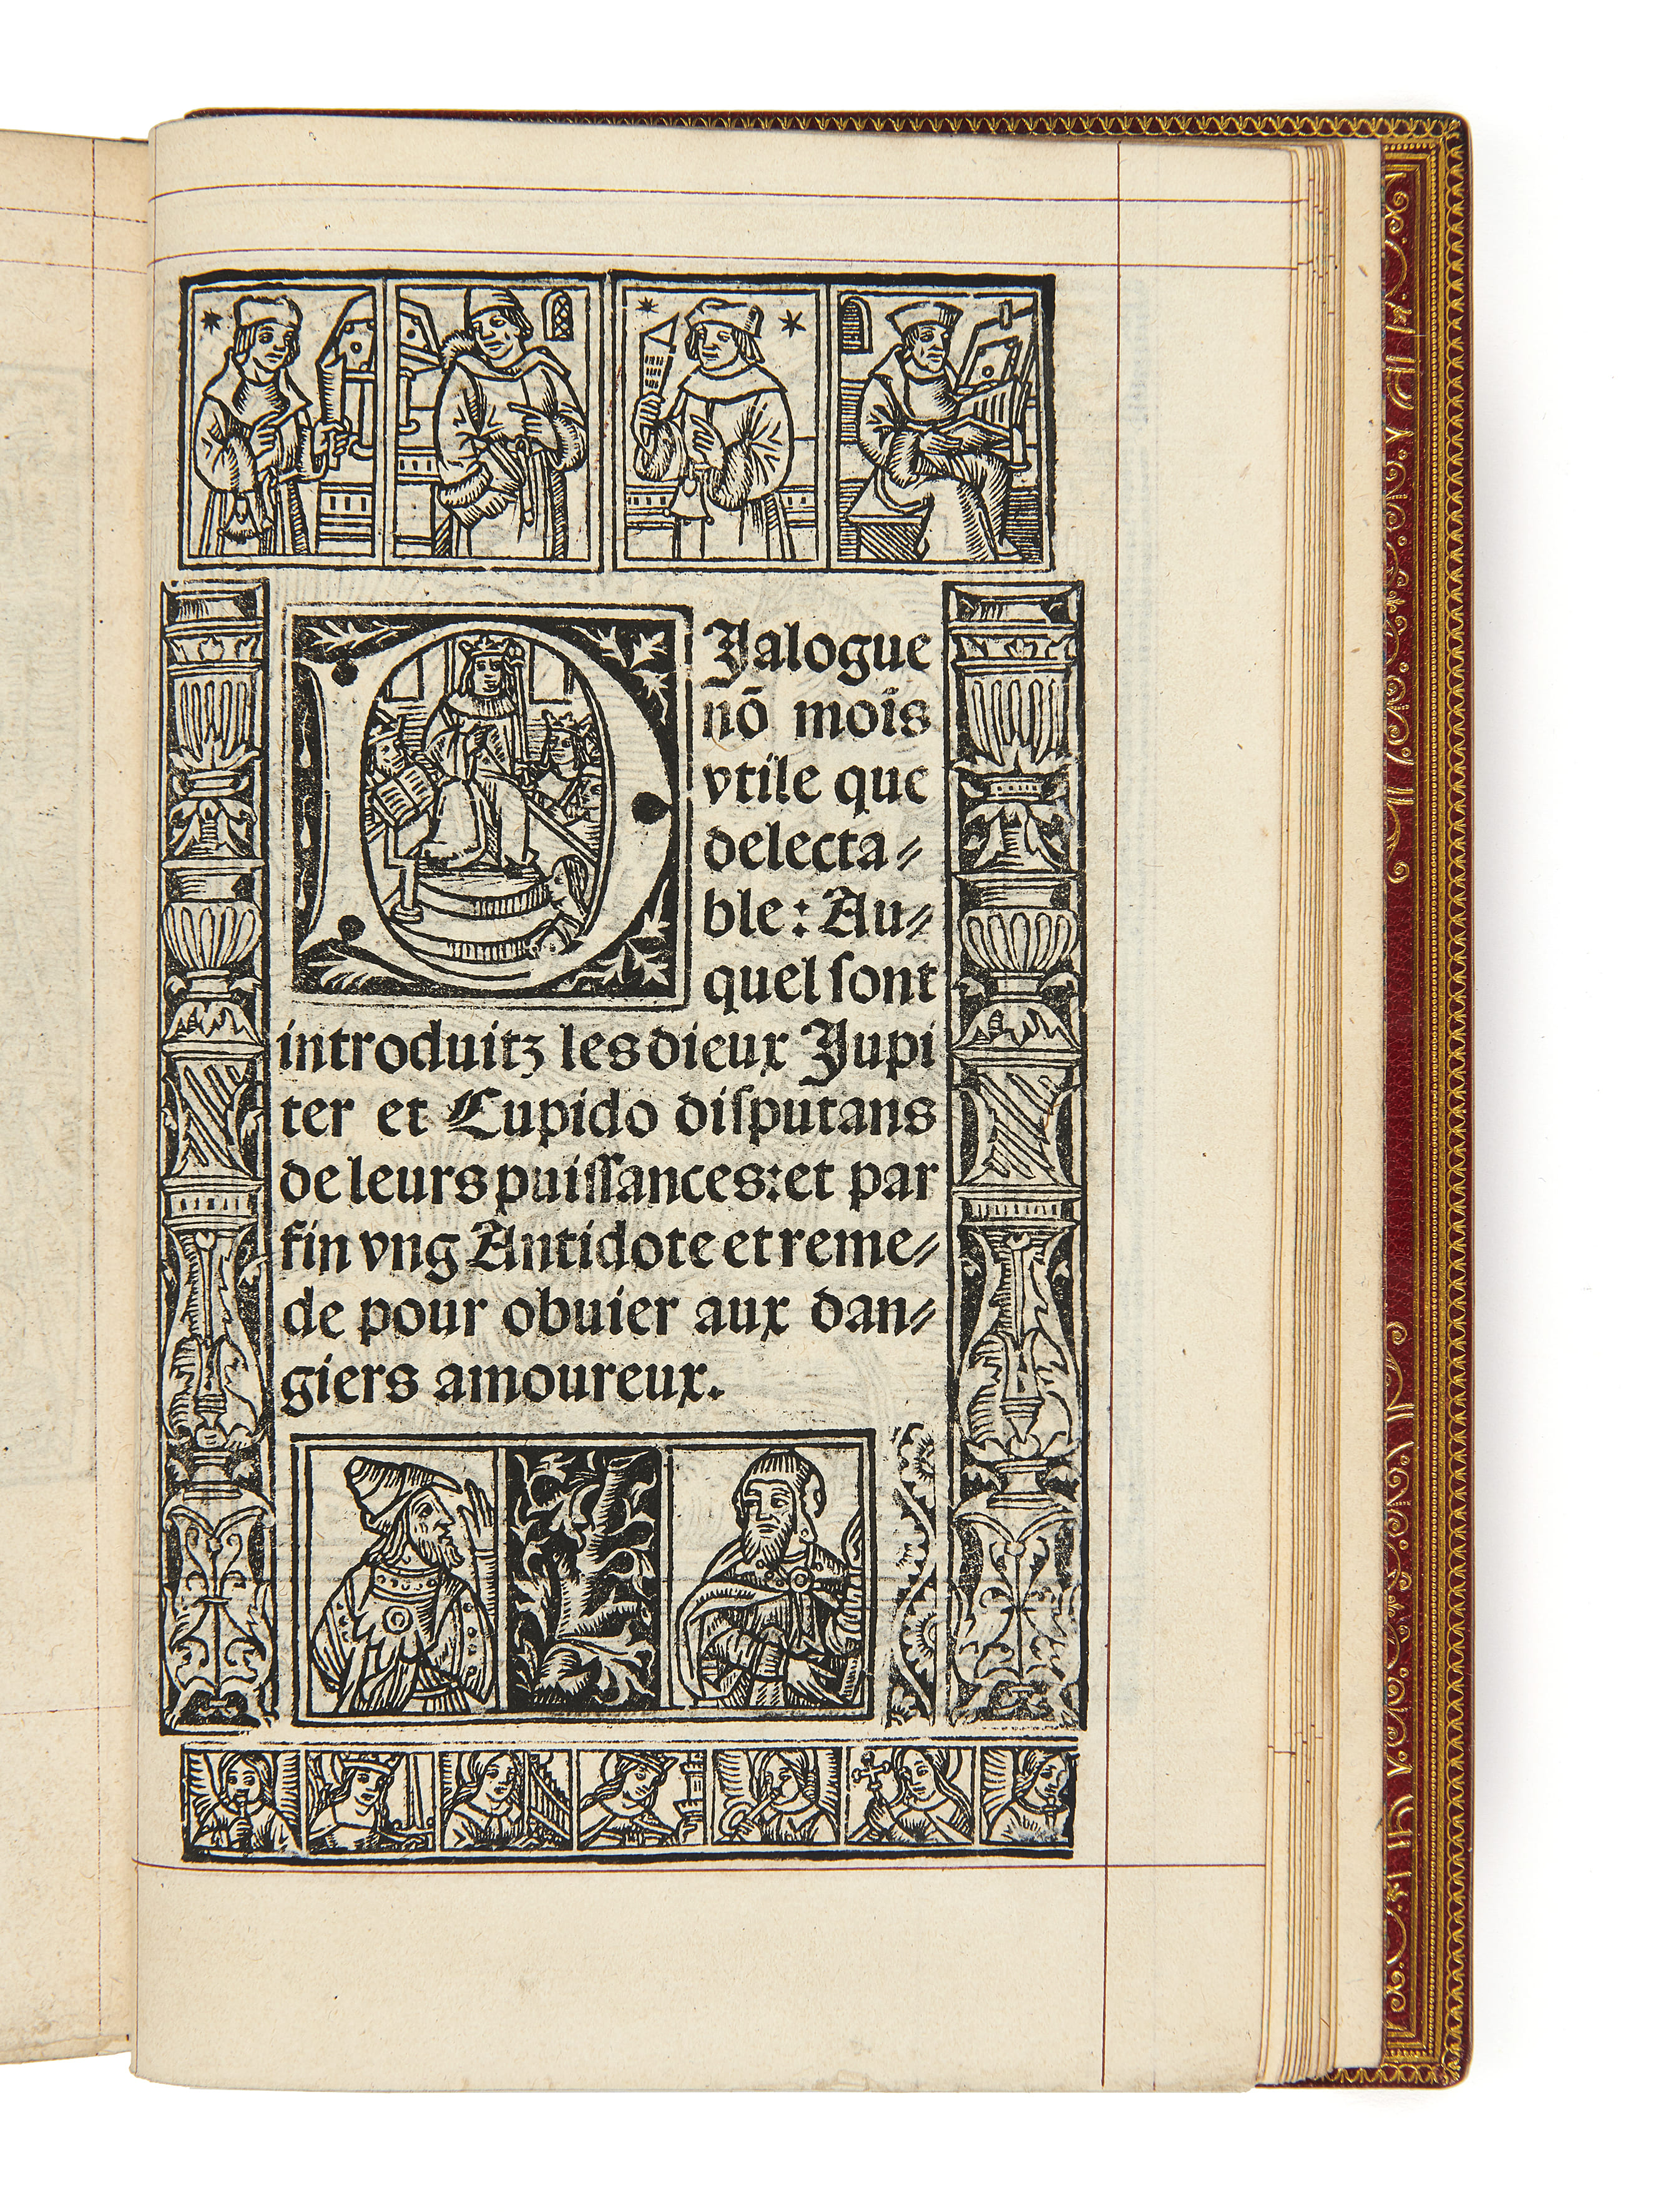 DJalogue
nō moīs
vtile que
delecta⸗
ble: Au⸗
quel ſont
introduitz les dieux Jupi
ter et Cupido diſputans
de leurs puiſſances: et par
fin vng Antidote et reme⸗
de pour obuier aux dan⸗
giers amoureux.